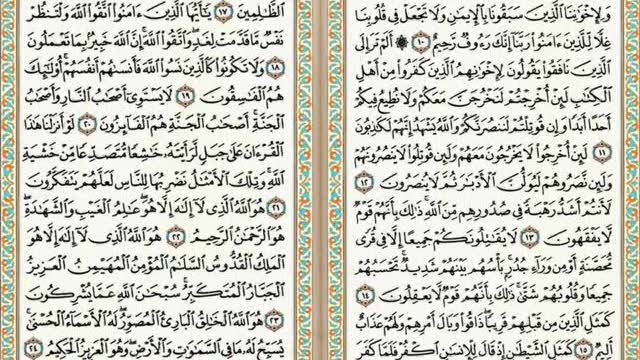 وَلِإِخْوَٰنِنَا ٱلَّذِينَ سَبَقُونَا بِٱلْإِيمَٰنِ وَلَا تَجْعَلْ فِى قُلُوبِنَا
غِلًّا لِّلَّذِينَ ءَامَنُوا۟ رَبَّنَآ إِنَّكَ رَءُوفٌ رَّحِيمٌ ١٠ ۞ أَلَمْ تَرَ إِلَى
ٱلَّذِينَ نَافَقُوا۟ يَقُولُونَ لِإِخْوَٰنِهِمُ ٱلَّذِينَ كَفَرُوا۟ مِنْ أَهْلِ
ٱلْكِتَٰبِ لَئِنْ أُخْرِجْتُمْ لَنَخْرُجَنَّ مَعَكُمْ وَلَا نُطِيعُ فِيكُمْ
أَحَدًا أَبَدًا وَإِن قُوتِلْتُمْ لَنَنصُرَنَّكُمْ وَٱللَّهُ يَشْهَدُ إِنَّهُمْ لَكَٰذِبُونَ
١١ لَئِنْ أُخْرِجُوا۟ لَا يَخْرُجُونَ مَعَهُمْ وَلَئِن قُوتِلُوا۟ لَا يَنصُرُونَهُمْ
وَلَئِن نَّصَرُوهُمْ لَيُوَلُّنَّ ٱلْأَدْبَٰرَ ثُمَّ لَا يُنصَرُونَ ١٢
لَأَنتُمْ أَشَدُّ رَهْبَةً فِى صُدُورِهِم مِّنَ ٱللَّهِ ذَٰلِكَ بِأَنَّهُمْ قَوْمٌ
لَّا يَفْقَهُونَ ١٣ لَا يُقَٰتِلُونَكُمْ جَمِيعًا إِلَّا فِى قُرًى
مُّحَصَّنَةٍ أَوْ مِن وَرَآءِ جُدُرٍۭ بَأْسُهُم بَيْنَهُمْ شَدِيدٌ تَحْسَبُهُمْ
جَمِيعًا وَقُلُوبُهُمْ شَتَّىٰ ذَٰلِكَ بِأَنَّهُمْ قَوْمٌ لَّا يَعْقِلُونَ ١٤
كَمَثَلِ ٱلَّذِينَ مِن قَبْلِهِمْ قَرِيبًا ذَاقُوا۟ وَبَالَ أَمْرِهِمْ وَلَهُمْ عَذَابٌ
أَلِيمٌ ١٥ كَمَثَلِ ٱلشَّيْطَٰنِ إِذْ قَالَ لِلْإِنسَٰنِ ٱكْفُرْ فَلَمَّا كَفَرَ
ٱلظَّٰلِمِينَ ١٧ يَٰٓأَيُّهَا ٱلَّذِينَ ءَامَنُوا۟ ٱتَّقُوا۟ ٱللَّهَ وَلْتَنظُرْ
نَفْسٌ مَّا قَدَّمَتْ لِغَدٍ وَٱتَّقُوا۟ ٱللَّهَ إِنَّ ٱللَّهَ خَبِيرٌۢ بِمَا تَعْمَلُونَ
١٨ وَلَا تَكُونُوا۟ كَٱلَّذِينَ نَسُوا۟ ٱللَّهَ فَأَنسَىٰهُمْ أَنفُسَهُمْ أُو۟لَٰٓئِكَ
هُمُ ٱلْفَٰسِقُونَ ١٩ لَا يَسْتَوِىٓ أَصْحَٰبُ ٱلنَّارِ وَأَصْحَٰبُ
ٱلْجَنَّةِ أَصْحَٰبُ ٱلْجَنَّةِ هُمُ ٱلْفَآئِزُونَ ٢٠ لَوْ أَنزَلْنَا هَٰذَا
ٱلْقُرْءَانَ عَلَىٰ جَبَلٍ لَّرَأَيْتَهُۥ خَٰشِعًا مُّتَصَدِّعًا مِّنْ خَشْيَةِ
ٱللَّهِ وَتِلْكَ ٱلْأَمْثَٰلُ نَضْرِبُهَا لِلنَّاسِ لَعَلَّهُمْ يَتَفَكَّرُونَ
٢١ هُوَ ٱللَّهُ ٱلَّذِى لَآ إِلَٰهَ إِلَّا هُوَ عَٰلِمُ ٱلْغَيْبِ وَٱلشَّهَٰدَةِ
هُوَ ٱلرَّحْمَٰنُ ٱلرَّحِيمُ ٢٢ هُوَ ٱللَّهُ ٱلَّذِى لَآ إِلَٰهَ إِلَّا هُوَ
ٱلْمَلِكُ ٱلْقُدُّوسُ ٱلسَّلَٰمُ ٱلْمُؤْمِنُ ٱلْمُهَيْمِنُ ٱلْعَزِيزُ
ٱلْجَبَّارُ ٱلْمُتَكَبِّرُ سُبْحَٰنَ ٱللَّهِ عَمَّا يُشْرِكُونَ
٢٣ هُوَ ٱللَّهُ ٱلْخَٰلِقُ ٱلْبَارِئُ ٱلْمُصَوِّرُ لَهُ ٱلْأَسْمَآءُ ٱلْحُسْنَىٰ
يُسَبِّحُ لَهُۥ مَا فِى ٱلسَّمَٰوَٰتِ وَٱلْأَرْضِ وَهُوَ ٱلْعَزِيزُ ٱلْحَكِيمُ ٢٤